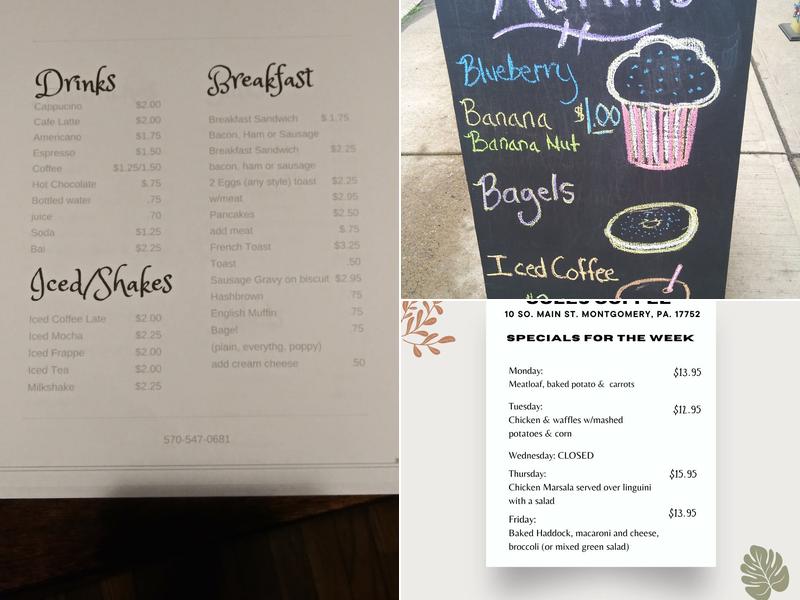 Drinks
Cappucino $2.00
Cafe Latte $2.00
Americano $1.75
Espresso $1.50
Coffee $1.25/1.50
Hot Chocolate $.75
Bottled water .75
juice .70
Soda $1.25
Bai $2.25
Iced/Shakes
Iced Coffee Late $2.00
Iced Mocha $2.25
Iced Frappe $2.00
Iced Tea $2.00
Milkshake $2.25
Breakfast
Breakfast Sandwich $ 1.75
Bacon, Ham or Sausage
Breakfast Sandwich $2.25
bacon, ham or sausage
2 Eggs (any style) toast $2.25
w/meat $2.95
Pancakes $2.50
add meat $.75
French Toast $3.25
Toast .50
Sausage Gravy on biscuit $2.95
Hashbrown .75
English Muffin .75
Bagel .75
(plain, everythg, poppy)
add cream cheese .50
570-547-0681
Blueberry
Banana $1.00
Banana Nut
Bagels
Iced Coffee
10 SO. MAIN ST. MONTGOMERY, PA. 17752
SPECIALS FOR THE WEEK
Monday: $13.95
Meatloaf, baked potato & carrots
Tuesday: $12.95
Chicken & waffles w/mashed
potatoes & corn
Wednesday: CLOSED
Thursday: $15.95
Chicken Marsala served over linguini
with a salad
Friday: $13.95
Baked Haddock, macaroni and cheese,
broccoli (or mixed green salad)